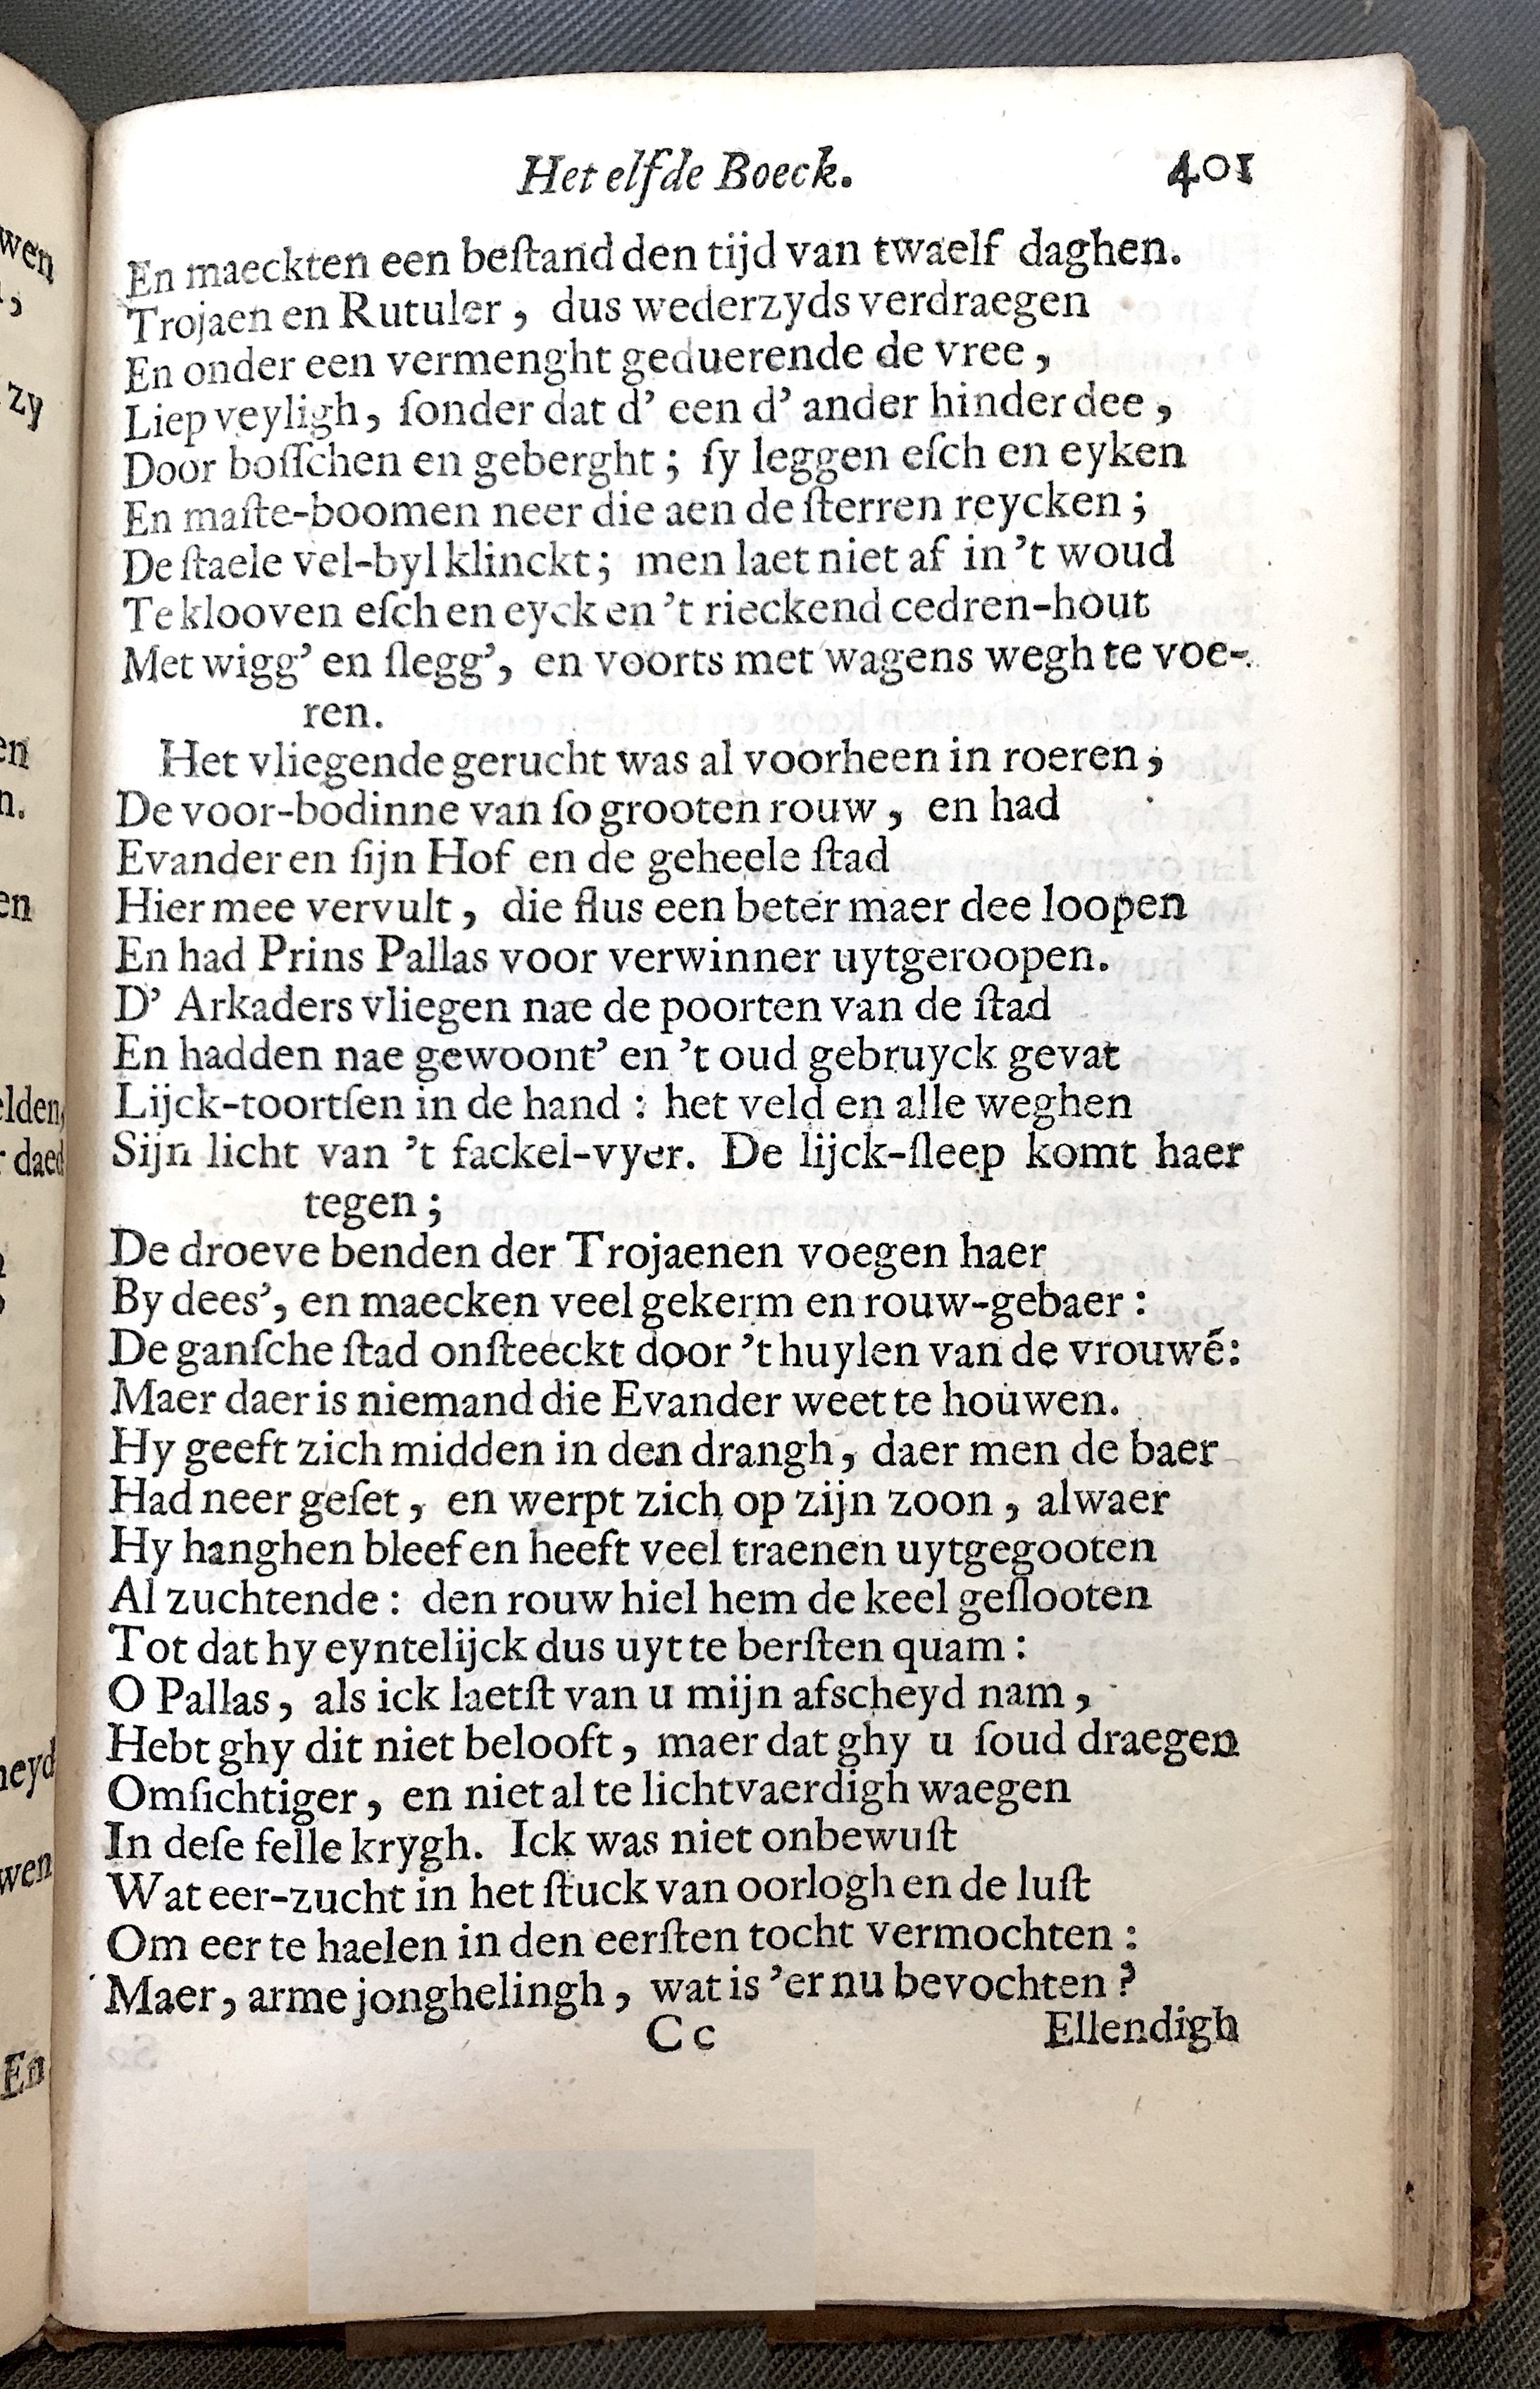 Het elfde Boeck. 401
En maeckten een beſtand den tijd van twaelf daghen.
Trojaen en Rutuler, dus wederzyds verdraegen
En onder een vermenght geduerende de vree,
Liep veyligh, ſonder dat d' een d' ander hinder dee,
Door boſſchen en geberght; ſy leggen eſch en eyken
En maſte-boomen neer die aen de ſterren reycken;
De ſtaele vel-byl klinckt; men laet niet af in 't woud
Te klooven eſch en eyck en 't rieckend cedren-hout
Met wigg' en ſlegg', en voorts met wagens wegh te voe-
ren.
Het vliegende gerucht was al voorheen in roeren,
De voor-bodinne van ſo grooten rouw, en had
Evander en ſijn Hof en de geheele ſtad
Hier mee vervult, die flus een beter maer dee loopen
En had Prins Pallas voor verwinner uytgeroopen.
D' Arkaders vliegen nae de poorten van de ſtad
En hadden nae gewoont' en 't oud gebruyck gevat
Lijck-toortſen in de hand: het veld en alle weghen
Sijn licht van 't fackel-vyer. De lijck-ſleep komt haer
tegen;
De droeve benden der Trojaenen voegen haer
By dees', en maecken veel gekerm en rouw-gebaer:
De ganſche ſtad onſteeckt door 't huylen van de vrouwẽ:
Maer daer is niemand die Evander weet te houwen.
Hy geeft zich midden in den drangh, daer men de baer
Had neer geſet, en werpt zich op zijn zoon, alwaer
Hy hanghen bleef en heeft veel traenen uytgegooten
Al zuchtende: den rouw hiel hem de keel geſlooten
Tot dat hy eyntelijck dus uyt te berſten quam:
O Pallas, als ick laetſt van u mijn afscheyd nam,
Hebt ghy dit niet belooft, maer dat ghy u ſoud draegen
Omſichtiger, en niet al te lichtvaerdigh waegen
In deſe felle krygh. Ick was niet onbewuſt
Wat eer-zucht in het ſtuck van oorlogh en de luſt
Om eer te haelen in den eerſten tocht vermochten:
Maer, arme jonghelingh, wat is 'er nu bevochten?
Cc Ellendigh